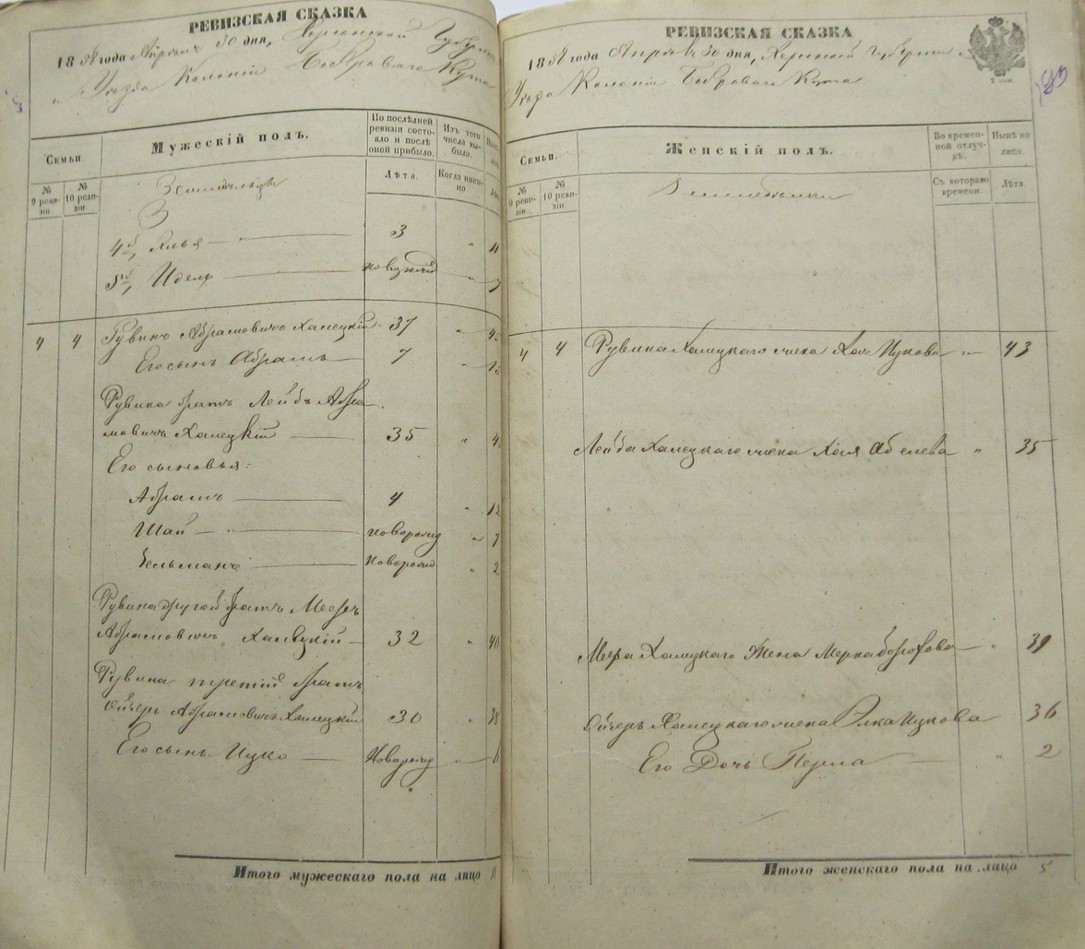 РЕВИЗСКАЯ СКАЗКА
18 58 года Апреля 30 дня, Херсонской Губернии
Уезда Колоніи Бобровый Кутъ
Семьи.
Мужескій полъ.
По послѣдней ревизіи состояло и послѣ оной прибыло.
Изъ того числа выбыло.
№ 9 ревизіи.
№ 10 ревизіи.
Лѣта.
Когда именно
Земледѣльцы
3
4й, Илья 3
5й, новорожд 7
4 4 Рувинъ Абрамовичъ Халецкій 37
Его сынъ Абрамъ 7
Рувина братъ Лейбъ Абра-
мовичъ Халецкій 35
Его сыновья:
Абрамъ 4 12
Шай новорожд 7
Зельманъ новорожд 2
Рувина другой братъ Мееръ
Абрамовичъ Халецкій 32 40
Рувина третій братъ
Ойзеръ Абрамовичъ Халецкій 30 38
Его сынъ Ицко Новорожд 6
Итого мужескаго пола на лицо 11
РЕВИЗСКАЯ СКАЗКА
18 58 года Апреля 30 дня, Херсонской Губерніи
Уезда Колоніи Бобровый Кутъ
Семьи.
Женскій полъ.
Во временной отлучкѣ.
Нынѣ на лицо.
№ 9 ревизіи.
№ 10 ревизіи.
Съ котораго времени.
Лѣта.
Земледѣльцы
4 4 Рувина Халецкаго жена Хая Ицкова 43
Лейба Халецкаго жена Хая Абелева 35
Меера Халецкаго Жена Мерка 39
Ойзеръ Халецкаго жена Элка Ицкова 36
Его Дочь Перла 2
Итого женскаго пола на лицо 5